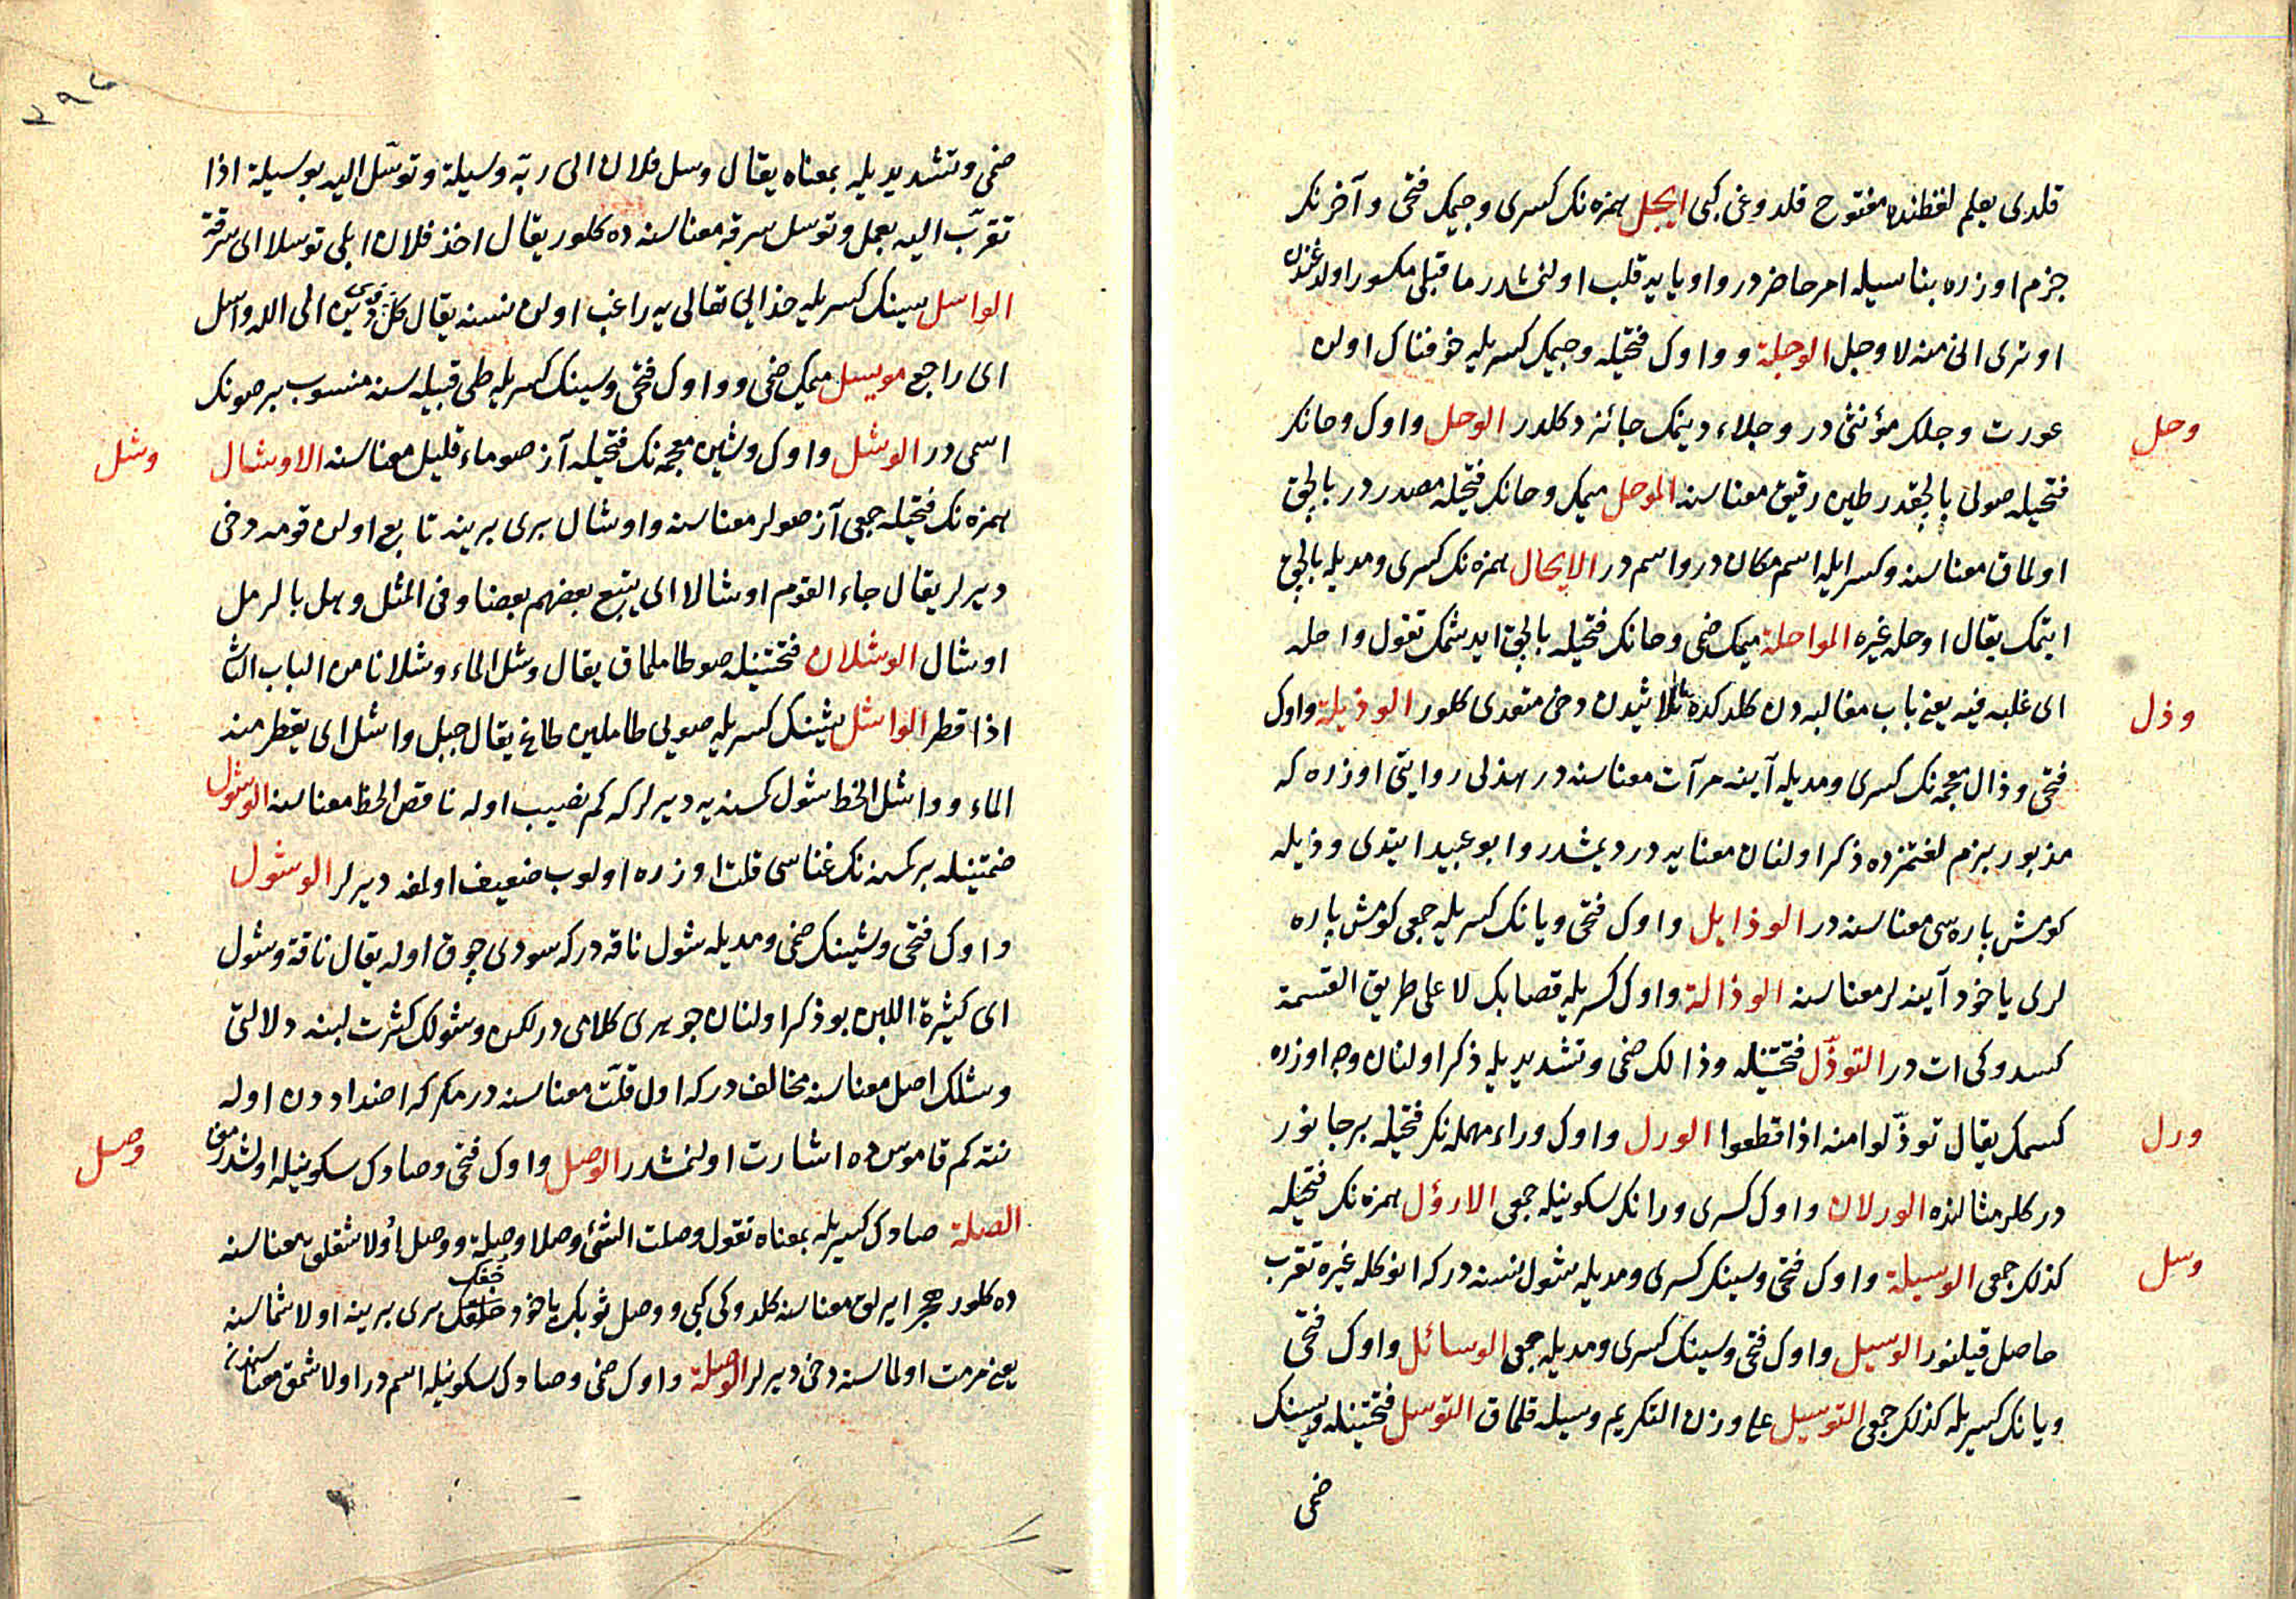 قلدی یعلم لفظنده مفتوح قلدوغی کبی ایجل همزه نک کسری وجیمک فتحی وآخرنک
جزم اوزره بناسیله امر حاضردر واو یایه قلب اولنمشدر ماقبلی مکسور اولدوغندن
اوتری انی منه لاوجل الوجلة وواوک فتحیله وجیمک کسریله خوفناک اولن
عورت وجلک مؤنثی در وجلاء دیمک جائز دکلدر الوحل واوک وحانک
وحل
فتحیله صولی بالچقدر طین رقیق معناسنه الموحل میمک وحانک فتحیله مصدردر بالچق
اولماق معناسنه وکسرایله اسم مکان در واسم در الایحال همزه نک کسری ومدیله بالچق
ایتمک یقال اوحله غیره المواحلة میمک ضمی وحانک فتحیله بالچق ایدشمک تقول واحله
ای غلبه فیه یعنی باب مغالبه دن کلدکده ثلاثیدن دخی متعدی کلور الوذیلة واوک
وذل
فتحی وذال معجمه نک کسری ومدیله آینه مرآت معناسنه در هذلی روایتی اوزره که
مذبور بیزم لغتمزده ذکر اولنان معنایه در دیمشدر وابو عبید ایتدی وذیله
کومش پاره سی معناسنه در الوذایل واوک فتحی ویانک کسریله جمعی کومش پاره
لری یاخود آینه لر معناسنه الوذالة واوک کسریله قصابک لا علی طریق القسمة
کسدوکی ات در التوذّل فتحتینله وذالک ضمی وتشدیدیله ذکر اولنان وجه اوزره
کسمک یقال توذّلوا منه اذا قطعوا الورل واوک وراء مهمله نک فتحیله بر جانور
ورل
در کلر مثالنده الورلان واوک کسری ورانک سکونیله جمعی الارؤل همزه نک فتحیله
کذلک جمعی الوسیلة واوک فتحی وسینک کسری ومدیله شول نسنه درکه انوکله غیره تقرب
وسل
حاصل قیلنور الوسیل واوک فتحی وسینک کسری ومدیله جمعی الوسائل واوک فتحی
ویانک کسریله کذلک جمعی التوسیل علی وزن التکریم وسیله قلماق التوسل فتحتینله وسینک
ضمی
٢٩٤
ضمی وتشدیدیله بمعناه یقال وسل فلان الی ربّه وسیلة وتوسّل الیه بوسیلة اذا
تقرّب الیه بعمل وتوسل سرقه معناسنه ده کلور یقال اخذ فلان ابلی توسلا ای سرقة
الواسل سینک کسریله خدای تعالی یه راغب اولن نسنه یقال کلّ ذی دین الی الله واسل
ای راجع مویسل میمک ضمی وواوک فتحی وسینک کسریله طی قبیله سنه منسوب بر صونک
اسمی در الوشل واوک وشین معجمه نک فتحیله آز صو ماء قلیل معناسنه الاوشال
وشل
همزه نک فتحیله جمعی آز صولر معناسنه واوشال بری برینه تابع اولن قومه دخی
دیرلر یقال جاء القوم اوشالا ای یتبع بعضهم بعضا وفی المثل وهل بالرمل
اوشال الوشلان فتحتینله صو طاملماق یقال وشل الماء وشلانا من الباب الثا
اذا قطر الواشل شینک کسریله صویی طاملین طاغ یقال جبل واشل ای یقطر منه
الماء وواشل الخط شول کسنه یه دیرلر که کم نصیب اوله ناقص الحظ معناسنه الوشول
ضمتینله بر کسنه نک غناسی قلت اوزره اولوب ضعیف اولمغه دیرلر الوشول
واوک فتحی وشینک ضمی ومدیله شول ناقه درکه سودی چوق اوله یقال ناقة وشول
ای کثیرة اللبن بو ذکر اولنان جوهری کلامی در لکن وشولک کثرت لبنه دلالتی
وشلک اصل معناسنه مخالف درکه اول قلّت معناسنه در مکر که اضداددن اوله
نته کم قاموس ده اشارت اولنمشدر الوصل واوک فتحی وصادک سکونیله اولشدرمق
وصل
الصلة صادک کسریله بمعناه تقول وصلت الشئ وصلا وصلة ووصل اولاشقلق معناسنه
ده کلور هجر ایرلق معناسنه کلدوکی کبی ووصل ثوبک یاخود خفک بری برینه اولاشماسنه
یعنی مرمت اولماسنه دخی دیرلر الوصلة واوک ضمی وصادک سکونیله اسم در اولاشمق معناسنه